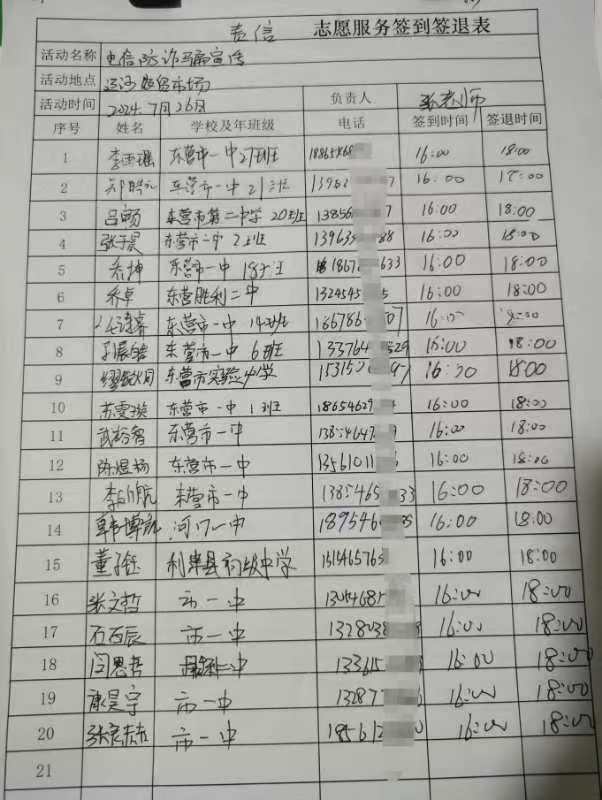 责信 志愿服务签到签退表
活动名称 电信防诈骗宣传
活动地点 贸市场
活动时间 2024.7月26日 负责人 张老师
序号 姓名 学校及年班级 电话 签到时间 签退时间
1 李雨瑶 东营市一中27班 18865468 16:00 18:00
2 东营市一中21班 1396 16:00 18:00
3 吕畅 东营市第二中学20班 13856 7 16:00 18:00
4 张子晨 东营市一中2班 139635 88 16:00 18:00
5 乔坤 东营市一中18班 1867 633 16:00 18:00
6 乔卓 东营胜利二中 1324545 5 16:00 18:00
7 东营市一中14班 186786 07 16:00 18:00
8 东营市一中6班 133764 529 16:00 18:00
9 东营市实验中学 153152 97 16:00 18:00
10 苏雯瑛 东营市一中1班 18654629 16:00 18:00
11 武裕智 东营市一中 9 16:00 18:00
12 陈煜杨 东营市一中 13561011 16:00 18:00
13 东营市一中 138 465 33 16:00 18:00
14 韩博 河口一中 189546 16:00 18:00
15 董子钰 利津县高级中学 151465765 16:00 18:00
16 张文哲 市一中 16:00 18:00
17 石西辰 市一中 1328038 16:00 18:00
18 闫思哲 二中 133615 16:00 18:00
19 康昊宇 市一中 13287 6 16:00 18:00
20 市一中 185612 0 16:00 18:00
21